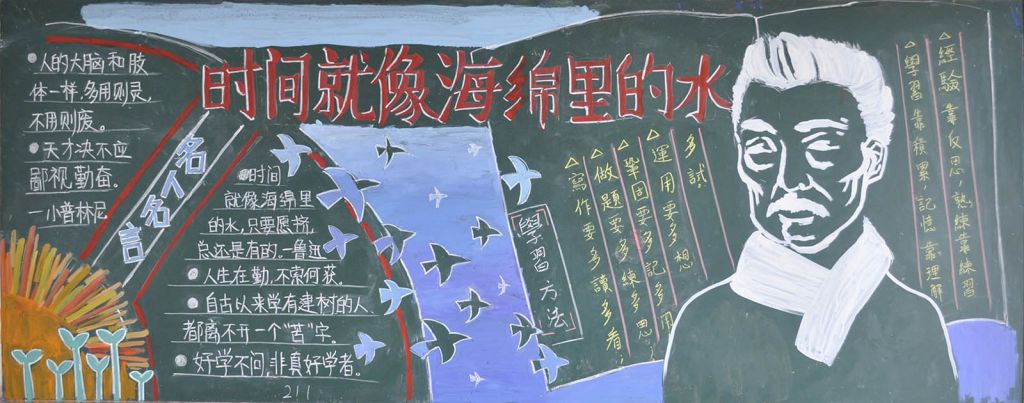 时间就像海绵里的水
人的大脑和肢
体一样，多用则灵，
不用则废。
天才决不应
鄙视勤奋。
—小普林尼
名人名言
时间
就像海绵里
的水，只要愿挤，
总还是有的。—鲁迅
人生在勤，不索何获。
自古以来学有建树的人
都离不开一个“苦”字。
好学不问，非真好学者。
211
學習方法
多試
運用要多想
鞏固要多記多用
做題要多練多思
寫作要多讀多看，
經驗靠反思，熟練靠練習
學習靠積累，記憶靠理解